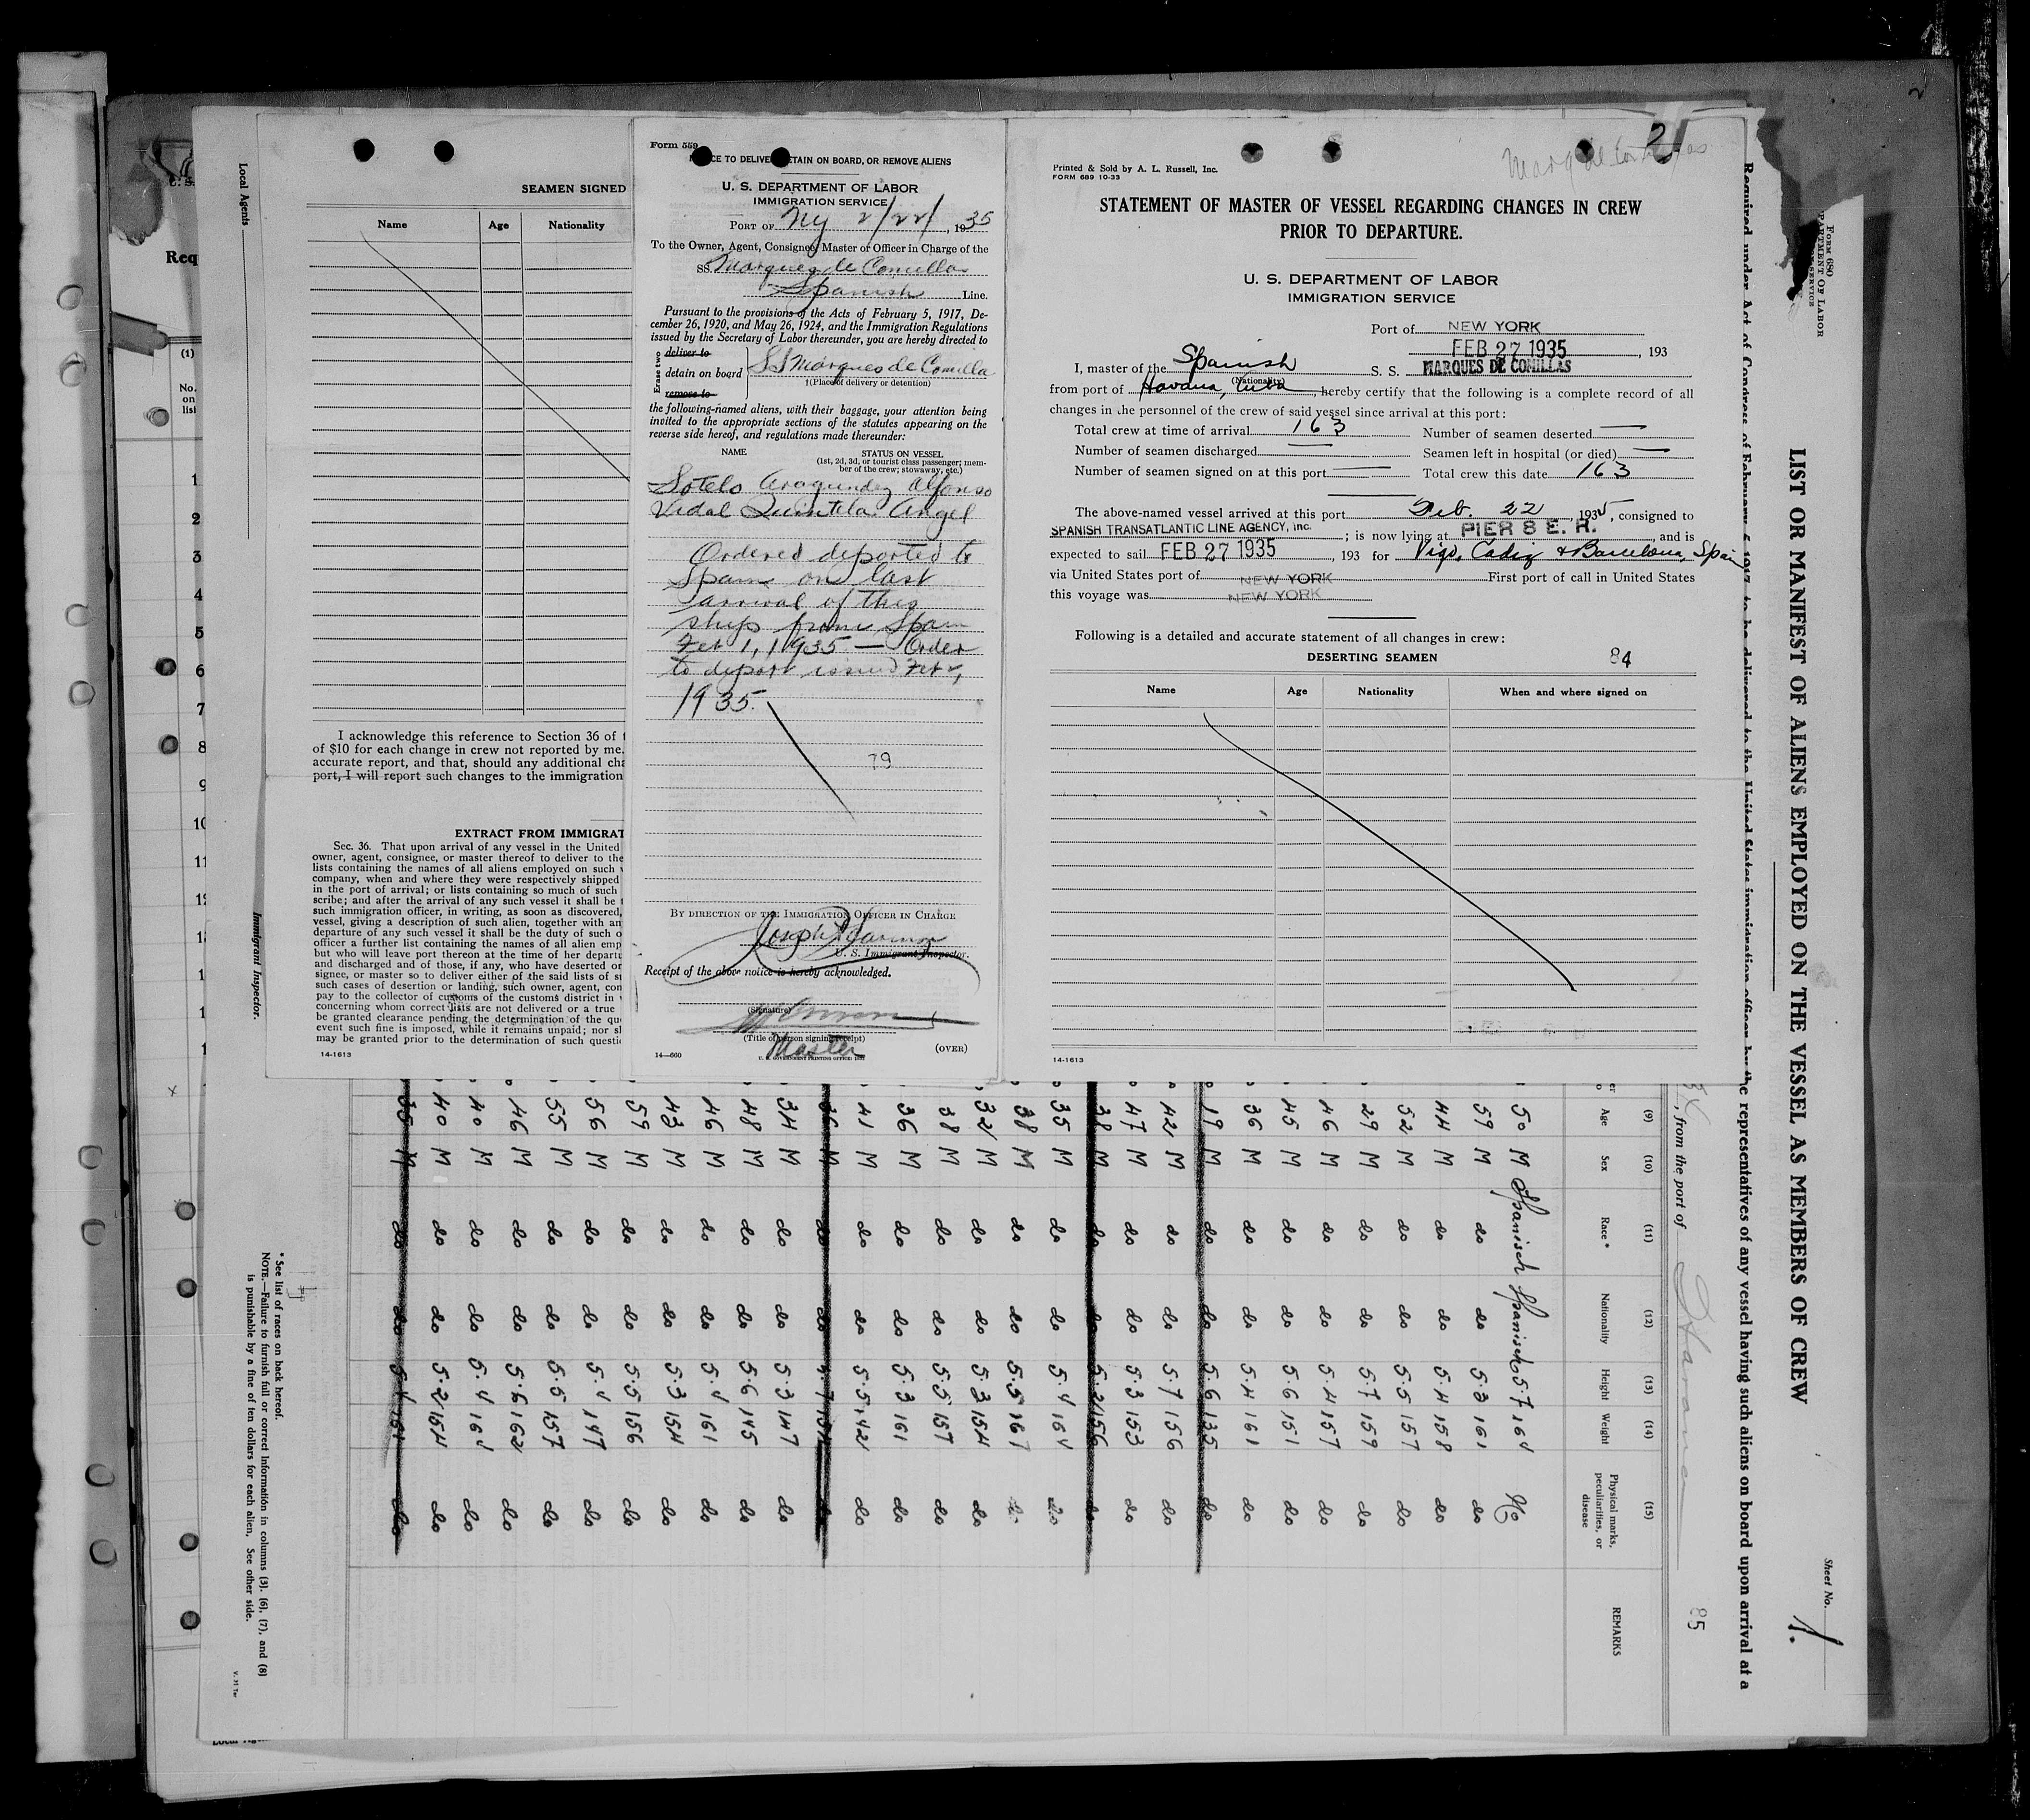 SEAMEN SIGNED
Name Age Nationality
I acknowledge this reference to Section 36 of
of $10 for each change in crew not reported by me.
accurate report, and that, should any additional
port, I will report such changes to the immigration
EXTRACT FROM IMMIGRAT
Sec. 36. That upon arrival of any vessel in the United
owner, agent, consignee, or master thereof to deliver to the
lists containing the names of all aliens employed on such
company, when and where they were respectively shipped
in the port of arrival; or lists containing so much of such
scribe; and after the arrival of any such vessel it shall be
such immigration officer, in writing, as soon as discovered,
vessel, giving a description of such alien, together with
departure of any such vessel it shall be the duty of such
officer a further list containing the names of all alien
but who will leave port thereon at the time of her
and discharged and of those, if any, who have deserted or
signee, or master so to deliver either of the said lists of
such cases of desertion or landing, such owner, agent,
pay to the collector of customs of the customs district in
concerning whom correct lists are not delivered or a true
be granted clearance pending the determination of the
event such fine is imposed, while it remains unpaid; nor
may be granted prior to the determination of such
14-1613
Form 559
TO DELIVER, DETAIN ON BOARD, OR REMOVE ALIENS
U. S. DEPARTMENT OF LABOR
IMMIGRATION SERVICE
PORT OF NY 2/22/, 1935
To the Owner, Agent, Consignee, Master or Officer in Charge of the
SS. Marques de Comillas
Spanish Line.
Pursuant to the provisions of the Acts of February 5, 1917, De-
cember 26, 1920, and May 26, 1924, and the Immigration Regulations
issued by the Secretary of Labor thereunder, you are hereby directed to
Erase two
deliver to
detain on board SS Marques de Comilla
remove to
†(Place of delivery or detention)
the following-named aliens, with their baggage, your attention being
invited to the appropriate sections of the statutes appearing on the
reverse side hereof, and regulations made thereunder:
NAME STATUS ON VESSEL
(1st, 2d, 3d, or tourist class passenger; mem-
ber of the crew; stowaway, etc.)
Sotelo Araqunde Alfonso
Vidal Quintela Angel
Ordered deported to
Spain on last
arrival of this
ship from Spain
Feb 1, 1935 — Order
to deport issued Feb
1935.
79
BY DIRECTION OF THE IMMIGRATION OFFICER IN CHARGE
U. S. Immigrant Inspector.
Receipt of the above notice is hereby acknowledged.
(Signature)
(Title of person signing receipt)
Master
(OVER)
14—660
U. S. GOVERNMENT PRINTING OFFICE
2
Printed & Sold by A. L. Russell, Inc.
FORM 689 10-33
STATEMENT OF MASTER OF VESSEL REGARDING CHANGES IN CREW
PRIOR TO DEPARTURE.
U. S. DEPARTMENT OF LABOR
IMMIGRATION SERVICE
Port of NEW YORK
FEB 27 1935, 193
I, master of the Spanish S. S. MARQUES DE COMILLAS
(Nationality)
from port of Havana, Cuba, hereby certify that the following is a complete record of all
changes in the personnel of the crew of said vessel since arrival at this port:
Total crew at time of arrival 163 Number of seamen deserted —
Number of seamen discharged — Seamen left in hospital (or died) —
Number of seamen signed on at this port — Total crew this date 163
The above-named vessel arrived at this port Feb. 22, 1935, consigned to
SPANISH TRANSATLANTIC LINE AGENCY, Inc.; is now lying at PIER 8 E. R., and is
expected to sail FEB 27 1935, 193 for Vigo, Cadiz & Barcelona, Spain
via United States port of NEW YORK First port of call in United States
this voyage was NEW YORK
Following is a detailed and accurate statement of all changes in crew:
DESERTING SEAMEN 84
Name Age Nationality When and where signed on
14-1613
Form 680
LIST OR MANIFEST OF ALIENS EMPLOYED ON THE VESSEL AS MEMBERS OF CREW
Sheet No. 1.
Required under Act of Congress of February 5, 1917, to be delivered to the United States immigration officer by the representatives of any vessel having such aliens on board upon arrival at a
, from the port of
85
(9) (10) (11) (12) (13) (14) (15)
Age Sex Race * Nationality Height Weight Physical marks, peculiarities, or disease REMARKS
50 M Spanisch Spanisch 5.7 164 No
59 M do do 5.3 161 do
44 M do do 5.4 158 do
52 M do do 5.5 157 do
29 M do do 5.7 159 do
46 M do do 5.4 157 do
45 M do do 5.6 151 do
36 M do do 5.4 161 do
19 M do do 5.6 135 do
42 M do do 5.7 156 do
47 M do do 5.3 153 do
38 M do do 5.2 156 do
35 M do do 5.4 164 do
38 M do do 5.5 167 do
32 M do do 5.3 154 do
38 M do do 5.5 157 do
36 M do do 5.3 161 do
41 M do do 5.5 142 do
36 M do do
34 M do do 5.3 147 do
48 M do do 5.6 145 do
46 M do do 5.4 161 do
43 M do do 5.3 154 do
59 M do do 5.5 156 do
56 M do do 5.4 147 do
55 M do do 5.5 157 do
46 M do do 5.6 162 do
40 M do do 5.4 164 do
40 M do do 5.2 154 do
35 M do do 5.4 do
* See list of races on back hereof.
NOTE.—Failure to furnish full or correct information in columns (3), (6), (7), and (8)
is punishable by a fine of ten dollars for each alien. See other side.
Local Agents
Immigrant Inspector.
Req
(1)
No.
on
list
1
2
3
4
5
6
7
8
9
10
11